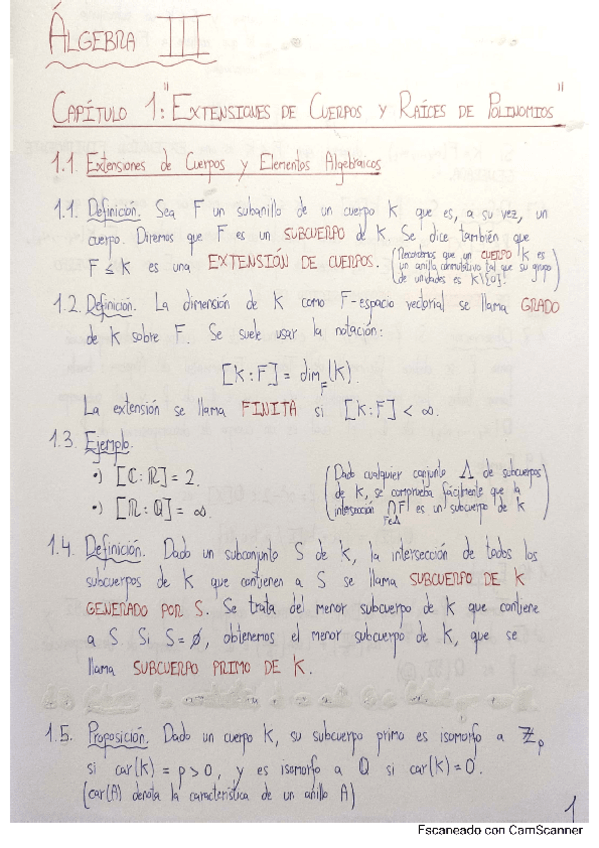 ÁLGEBRA III
CAPÍTULO 1: "EXTENSIONES DE CUERPOS Y RAÍCES DE POLINOMIOS"
1.1. Extensiones de Cuerpos y Elementos Algebraicos
1.1. Definición. Sea F un subanillo de un cuerpo K que es, a su vez, un
cuerpo. Diremos que F es un SUBCUERPO de K. Se dice también que
F ≤ K es una EXTENSIÓN DE CUERPOS.
(Recordemos que un CUERPO K es
un anillo conmutativo tal que su grupo
de unidades es K\{0}.)
1.2. Definición. La dimensión de K como F-espacio vectorial se llama GRADO
de K sobre F. Se suele usar la notación:
[K:F] = dim_F(K).
La extensión se llama FINITA si [K:F] < ∞.
1.3. Ejemplo.
•) [ℂ:ℝ] = 2.
•) [ℝ:ℚ] = ∞.
(Dado cualquier conjunto Λ de subcuerpos
de K, se comprueba fácilmente que la
intersección ⋂_{F∈Λ} F es un subcuerpo de K)
1.4. Definición. Dado un subconjunto S de K, la intersección de todos los
subcuerpos de K que contienen a S se llama SUBCUERPO DE K
GENERADO POR S. Se trata del menor subcuerpo de K que contiene
a S. Si S = ∅, obtenemos el menor subcuerpo de K, que se
llama SUBCUERPO PRIMO DE K.
1.5. Proposición. Dado un cuerpo K, su subcuerpo primo es isomorfo a ℤp
si car(K) = p > 0, y es isomorfo a ℚ si car(K) = 0.
(car(A) denota la característica de un anillo A)
1
Escaneado con CamScanner